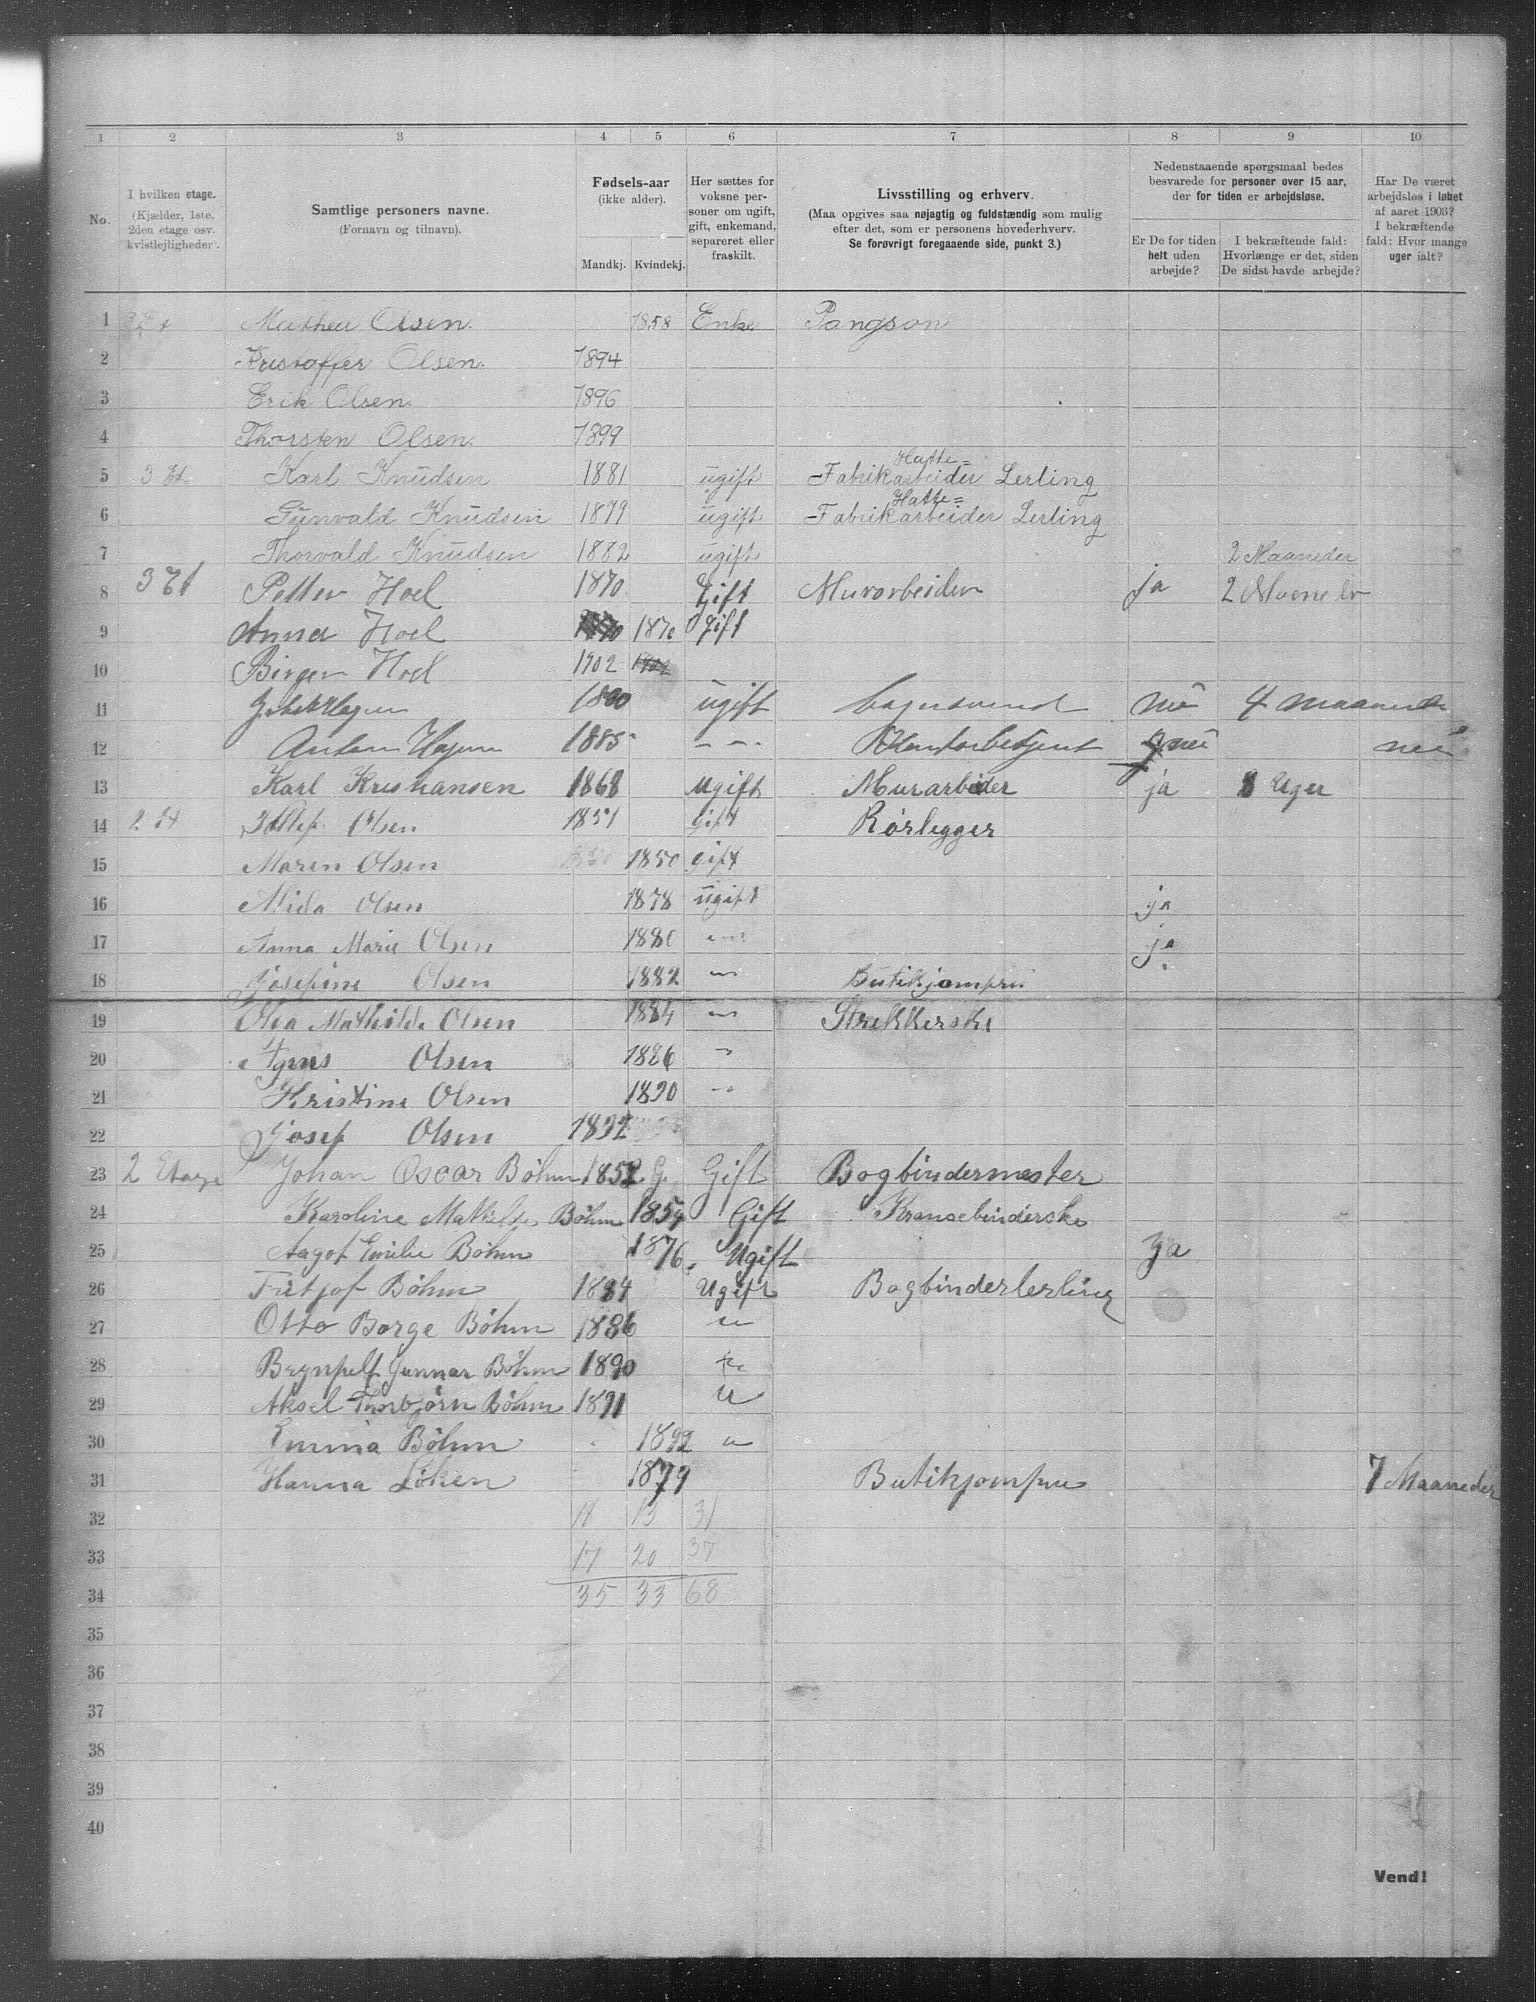 1 2 3 4 5 6 7 8 9 10
No.
I hvilken etage.
(Kjælder, 1ste,
2den etage osv.
kvistlejligheder).
Samtlige personers navne.
(Fornavn og tilnavn).
Fødsels-aar
(ikke alder).
Mandkj. Kvindekj.
Her sættes for
voksne per-
soner om ugift,
gift, enkemand,
separeret eller
fraskilt.
Livsstilling og erhverv.
(Maa opgives saa nøjagtig og fuldstændig som mulig
efter det, som er personens hovederhverv.
Se forøvrigt foregaaende side, punkt 3.)
Nedenstaaende spørgsmaal bedes
besvarede for personer over 15 aar,
der for tiden er arbejdsløse.
Er De for tiden
helt uden
arbejde?
I bekræftende fald:
Hvorlænge er det, siden
De sidst havde arbejde?
Har De været
arbejdsløs i løbet
af aaret 1903?
I bekræftende
fald: Hvor mange
uger ialt?
1 Mathea Olsen. 1858 Enke Pangson
2 Kristoffer Olsen. 1894
3 Erik Olsen 1896
4 Thorsten Olsen. 1899
5 3 Et. Karl Knudsen 1881 ugift Fabrikarbeider Hatte= Lerling
6 Gunvald Knudsen 1879 ugift Fabrikarbeider Hatte= Lerling
7 Thorvald Knudsen 1882 ugift 2 Maaneder
8 3 Et Petter Hoel 1870 Gift Murarbeider ja 2
9 Anna Hoel 1870 gift
10 Birger Hoel 1902
11 ugift nei 4
12 Anton Hagen 1885 - - - nei nei
13 Karl Kristiansen 1868 Ugift Murarbeider ja 8 Uger
14 2 Et Olsen 1851 Gift Rørlegger
15 Maren Olsen 1850 gift
16 Alida Olsen 1878 ugift ja
17 Anna Marie Olsen 1880 " ja
18 Josefine Olsen 1882 " Butikjomfru
19 Olga Mathilde Olsen 1884 " Strikkerske
20 Agnes Olsen 1886 "
21 Kristine Olsen 1890 "
22 Josef Olsen 1892
23 2 Etage Johan Oscar Bøhm 1852 G. Gift Bogbindermester
24 Karoline Mathilde Bøhm 1854 Gift Kransebinderske
25 Aagot Emilie Bøhm 1876. Ugift ja
26 Fritjof Bøhm 1884 Ugift Bogbinderlerling
27 Otto Borge Bøhm 1886 "
28 Brynjulf Gunnar Bøhm 1890 "
29 Aksel Thorbjørn Bøhm 1891 "
30 Emma Bøhm 1892 "
31 Hanna Løken 1879 Butikjomfru 7 Maaneder
32 18 13 31
33 17 20 37
34 35 33 68
35
36
37
38
39
40
Vend!